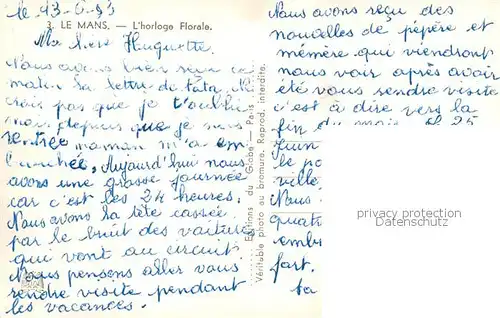 le 13-6-53
3. LE MANS. — L'horloge Florale.
Ma chere Huguette.
Nous avons bien reçu ce
matin la lettre de tata. Ne
crois pas que je t'oublie
mais depuis que je suis
rentrée maman m'a em
Aujourd'hui nous
avons une grosse journée
car c'est les 24 heures.
Nous avons la tête cassée
par le bruit des voitures
qui vont au circuit.
Nous pensons aller vous
rendre visite pendant
les vacances.
Editions du Globe - Paris
Véritable photo au bromure. Reprod. interdite.
Nous avons reçu des
nouvelles de pépère et
mémère qui viendront
nous voir après avoir
été vous rendre visite
c'est à dire vers la
fin du mois. 25
Juin
le po
ville.
Nous
quatr
embr
fort.
ta
privacy protection
Datenschutz